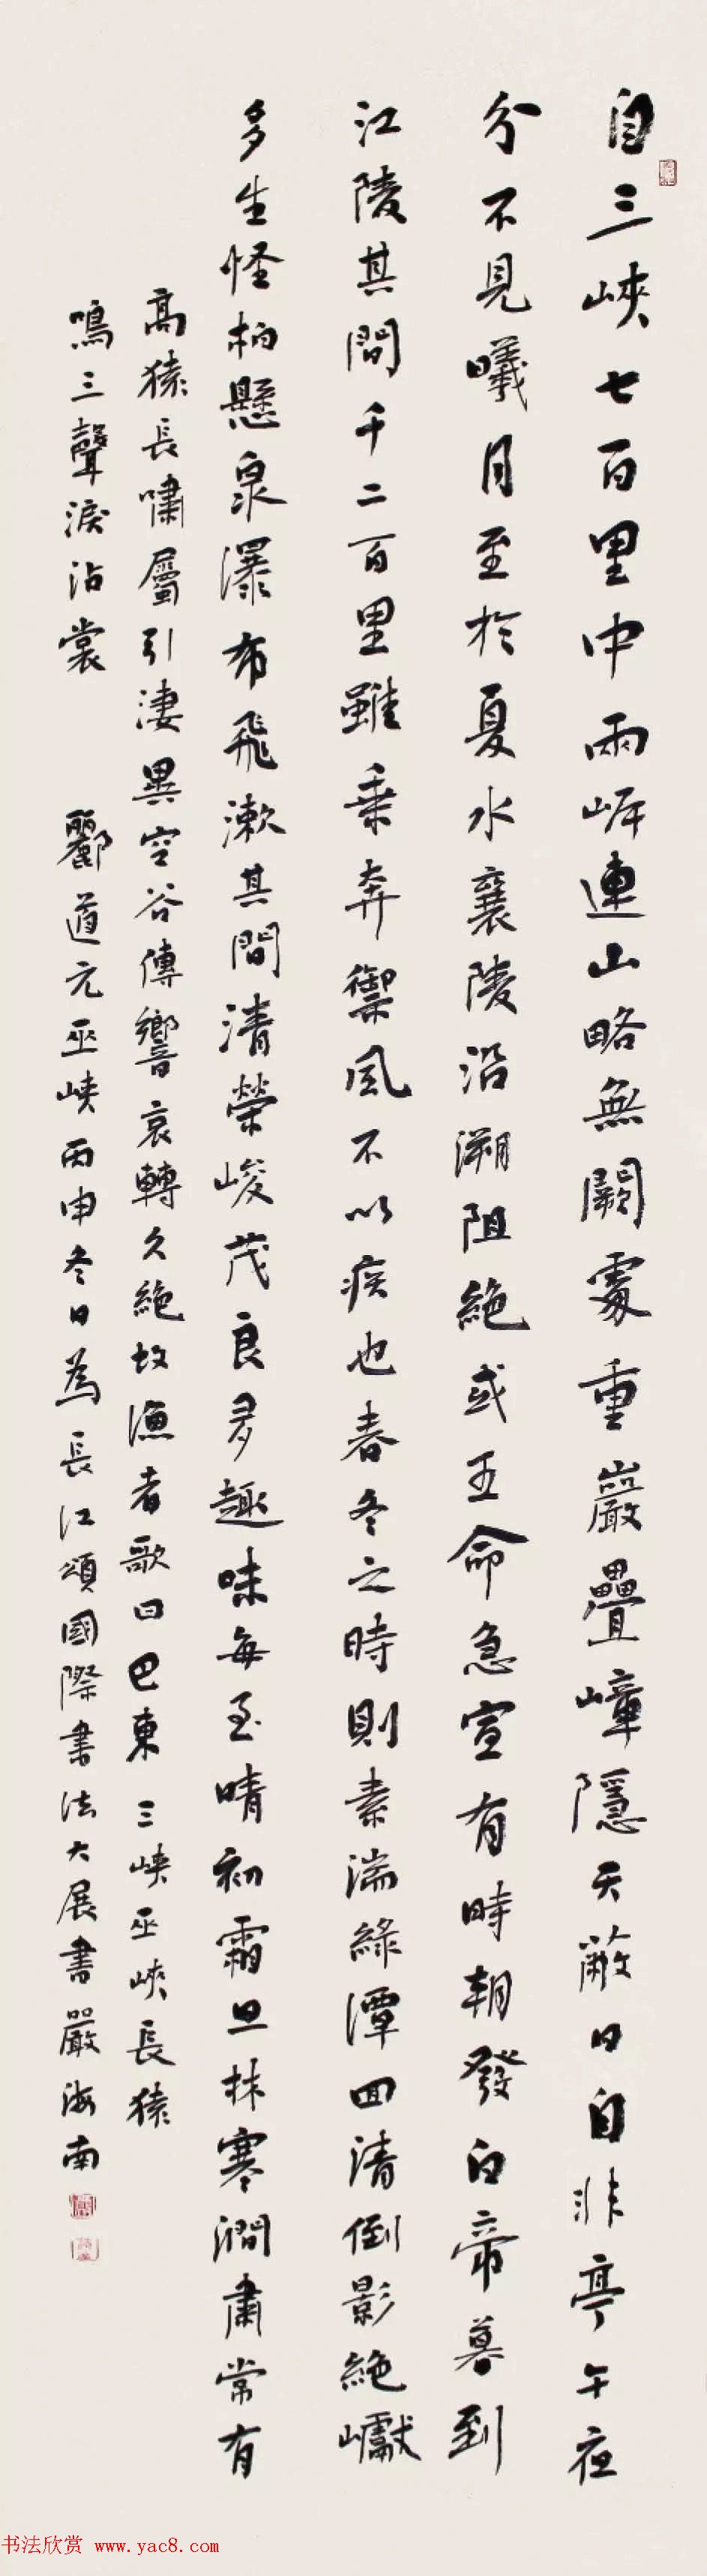 自三峽七百里中兩岸連山略無闕處重巖疊嶂隱天蔽日自非亭午夜
分不見曦月至於夏水襄陵沿溯阻絶或王命急宣有時朝發白帝暮到
江陵其間千二百里雖乘奔禦風不以疾也春冬之時則素湍綠潭回清倒影絶巘
多生怪柏懸泉瀑布飛漱其間清榮峻茂良多趣味每至晴初霜旦林寒澗肅常有
高猿長嘯屬引淒異空谷傳響哀轉久絶故漁者歌曰巴東三峽巫峽長猿
鳴三聲淚沾裳 酈道元巫峽丙申冬日為長江頌國際書法大展書嚴海南
书法欣赏 www.yac8.com